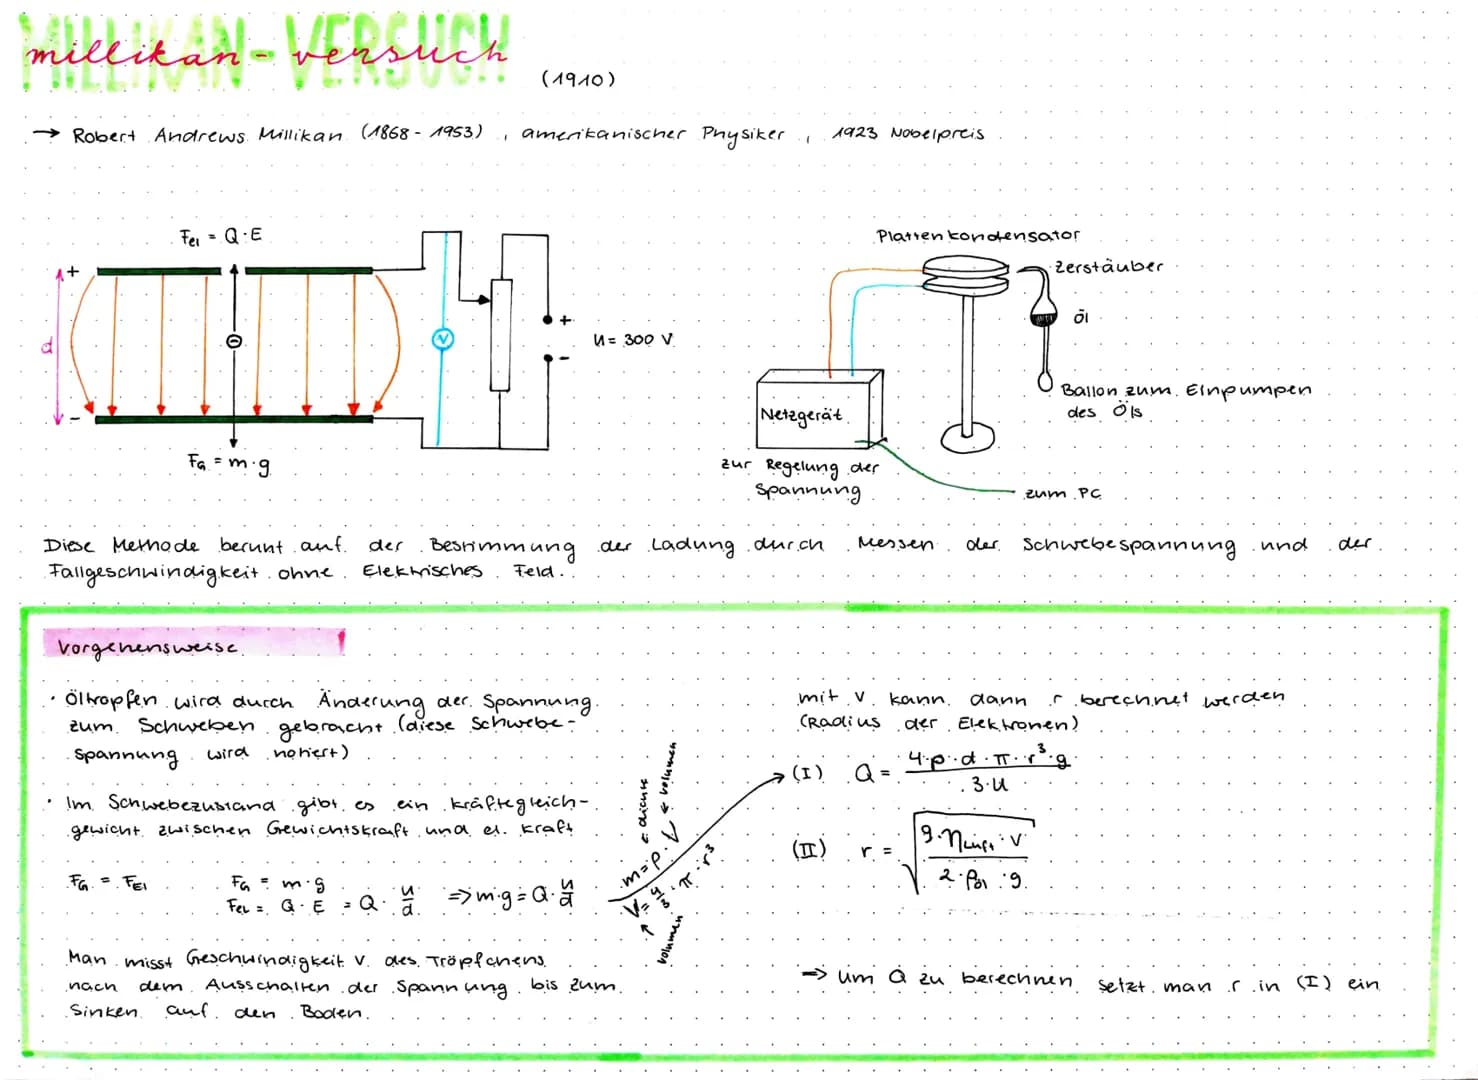 MILLIKAN-VERSUCH
millikan-versuch
(1910)
→ Robert Andrews Millikan (1868 - 1953), amerikanischer Physiker, 1923 Nobelpreis
Fel = Q·E
+
d
-
FG = m·g
V
+
-
U = 300 V
Plattenkondensator
Zerstäuber
Öl
Ballon zum Einpumpen
des Öls
Netzgerät
zur Regelung der
Spannung
zum PC
Diese Methode beruht auf der Bestimmung der Ladung durch Messen der Schwebespannung und der
Fallgeschwindigkeit ohne Elektrisches Feld.
Vorgehensweise
· Öltropfen wird durch Änderung der Spannung
zum Schweben gebracht (diese Schwebe-
spannung wird notiert)
· Im Schwebezustand gibt es ein Kräftegleich-
gewicht zwischen Gewichtskraft und el. Kraft
FG = FEl
FG = m·g
Fel = Q·E = Q·U/d ⇒ m·g = Q·U/d
m = ρ·V
← dichte
← volumen
V = 4/3·π·r³
↑ volumen
Man misst Geschwindigkeit v des Tröpfchens
nach dem Ausschalten der Spannung bis zum
Sinken auf den Boden.
mit v kann dann r berechnet werden
(Radius der Elektronen)
→ (I) Q = 4·ρ·d·π·r³·g / 3·U
(II) r = √(9·ηLuft·v / 2·ρöl·g)
⇒ um Q zu berechnen setzt man r in (I) ein